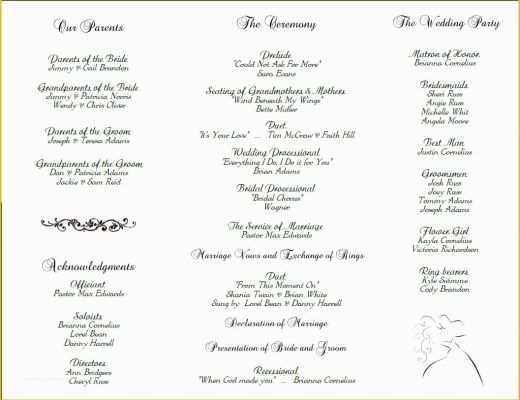 Our Parents
Parents of the Bride
Jimmy & Gail Brandon
Grandparents of the Bride
Jimmy & Patricia Norris
Wendy & Chris Oliver
Parents of the Groom
Joseph & Teresa Adams
Grandparents of the Groom
Dan & Patricia Adams
Jackie & Sam Reid
Acknowledgments
Officient
Pastor Max Edwards
Soloists
Brianna Cornelius
Lorel Bean
Danny Harrell
Directors
Ann Bridgers
Cheryl Rose
The Ceremony
Prelude
"Could Not Ask For More"
Sara Evans
Seating of Grandmothers & Mothers
"Wind Beneath My Wings"
Bette Midler
Duet
"It's Your Love" ... Tim McGraw & Faith Hill
Wedding Processional
"Everything I Do, I Do it for You"
Brian Adams
Bridal Processional
"Bridal Chorus"
Wagner
The Service of Marriage
Pastor Max Edwards
Marriage Vows and Exchange of Rings
Duet
"From This Moment On"
Shania Twain & Brian White
Sung by Lorel Bean & Danny Harrell
Declaration of Marriage
Presentation of Bride and Groom
Recessional
"When God made you" ... Brianna Cornelius
The Wedding Party
Matron of Honor
Brianna Cornelius
Bridesmaids
Sheri Rose
Angie Rose
Michelle Whit
Angela Moore
Best Man
Justin Cornelius
Groomsmen
Josh Rose
Joey Rose
Tommy Adams
Joseph Adams
Flower Girl
Kayla Cornelius
Victoria Richardson
Ring bearers
Kyle Simms
Cody Brandon